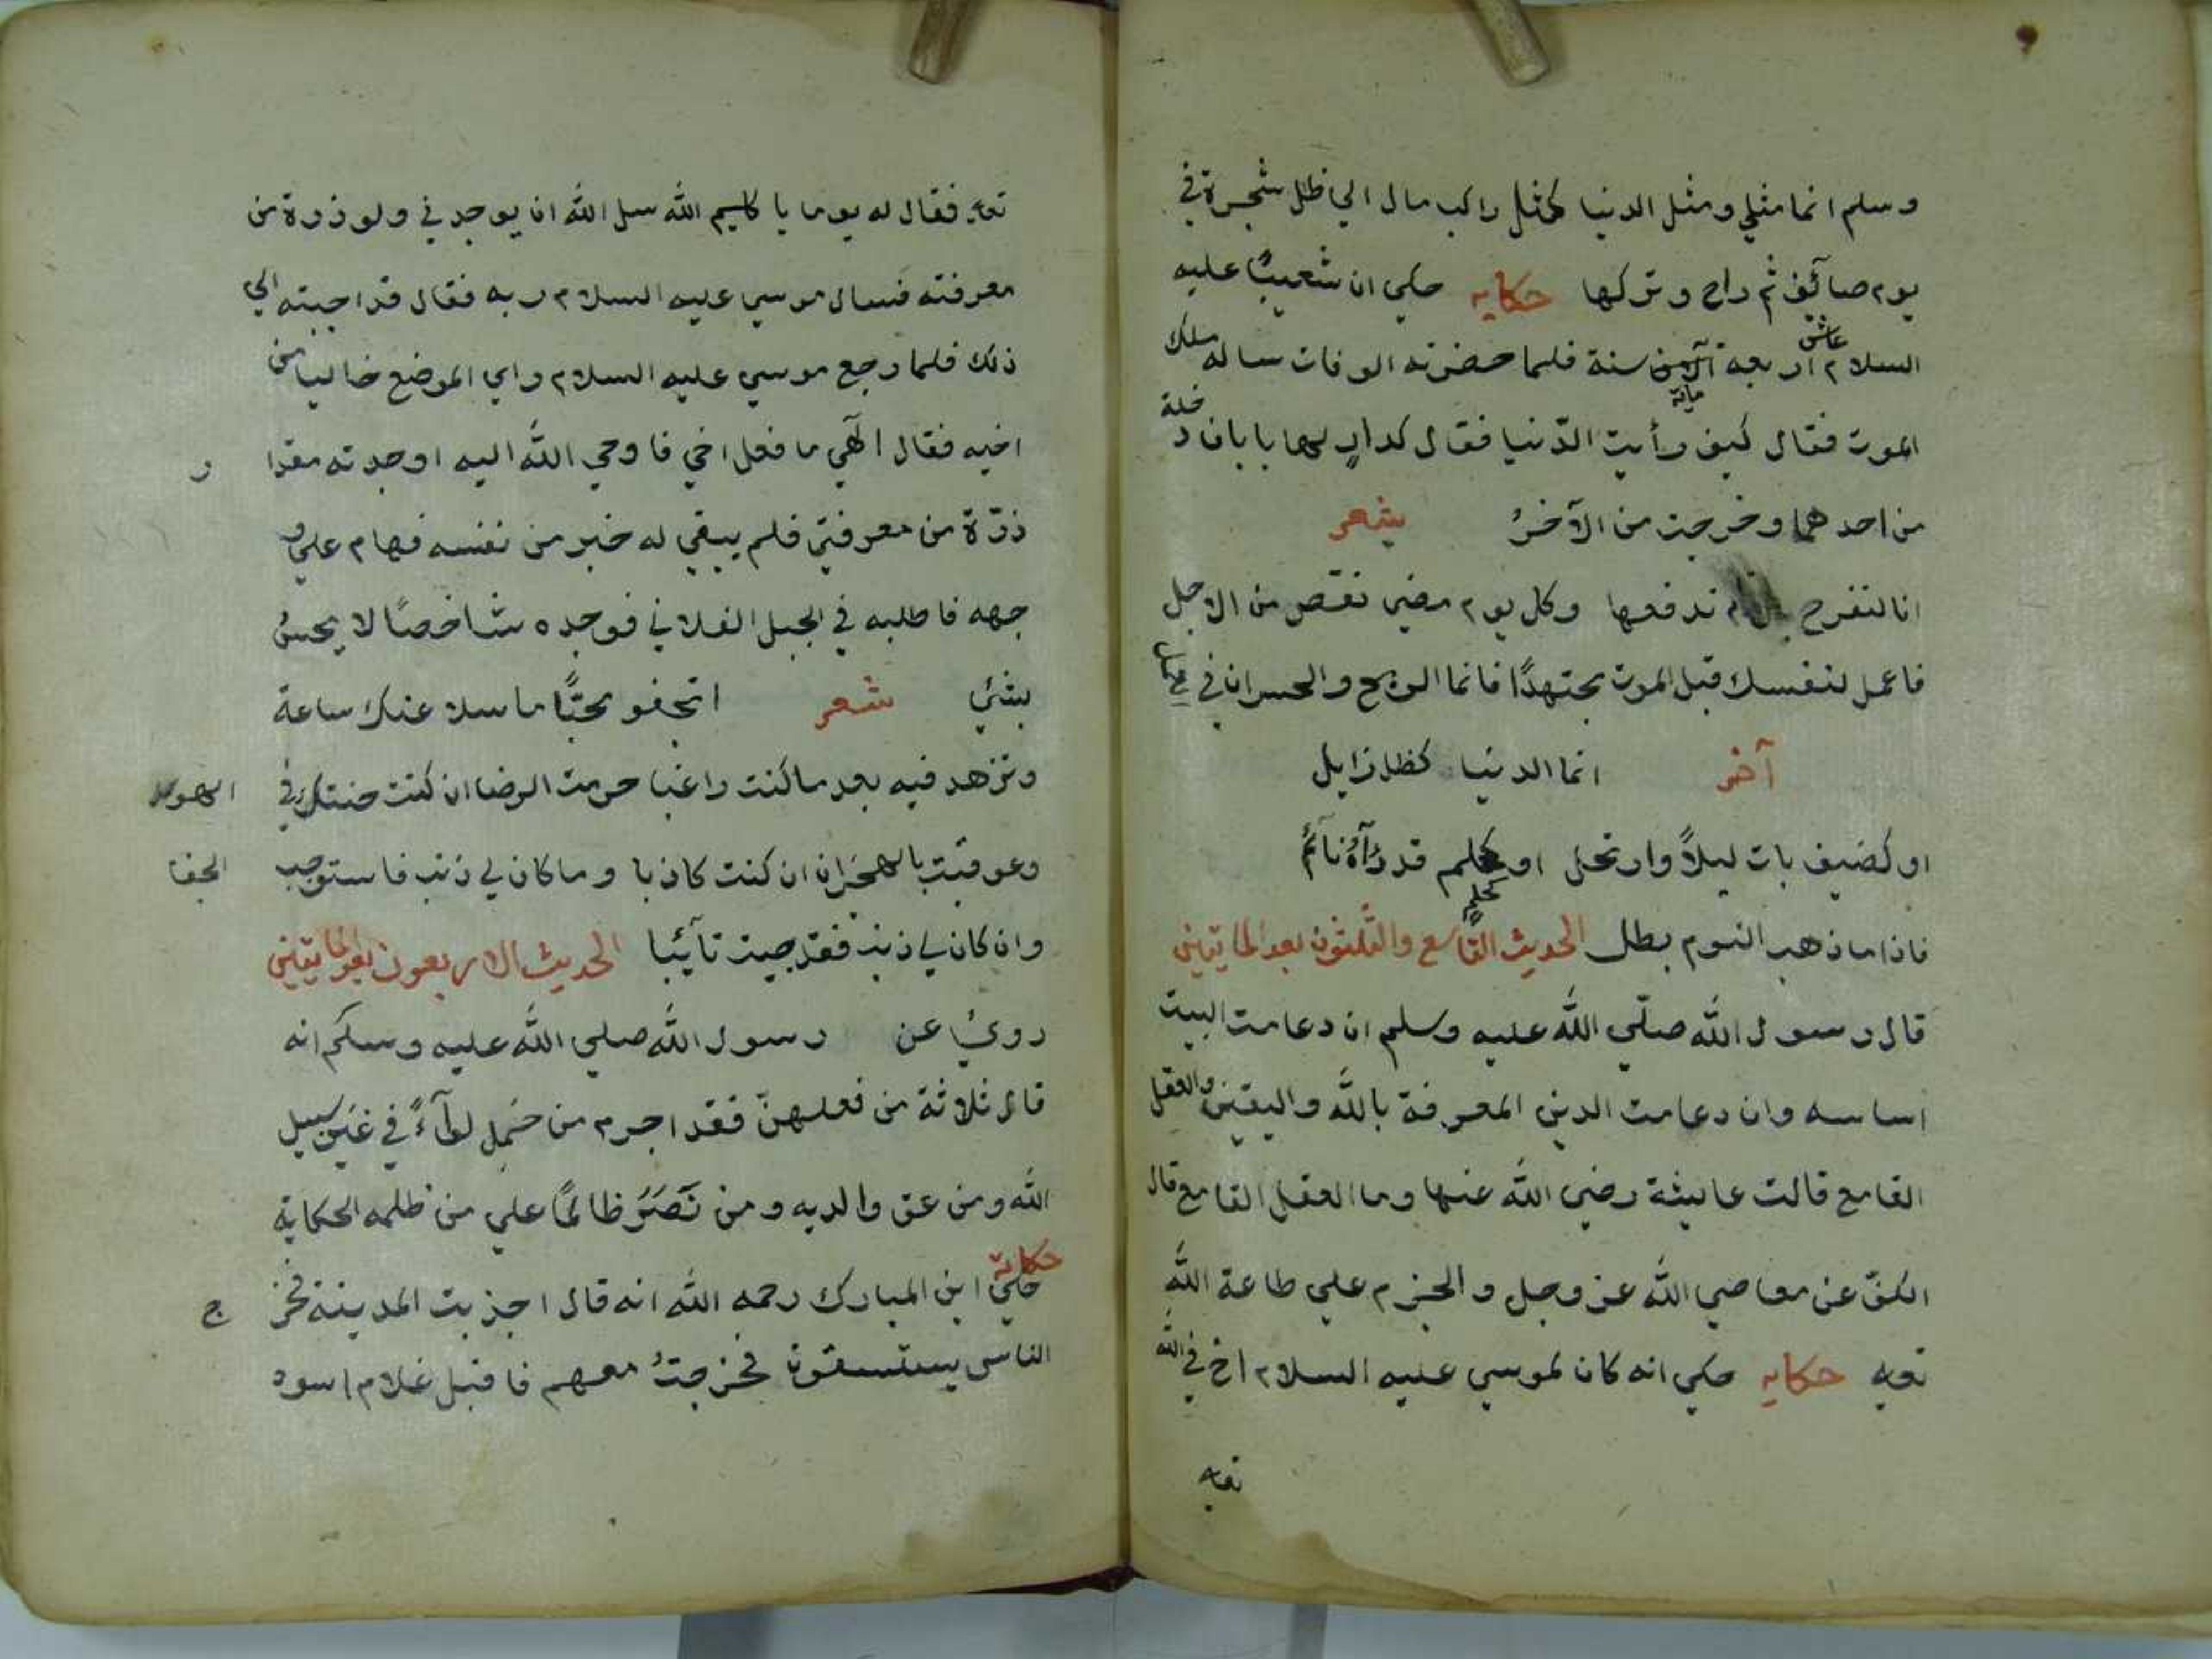 وسلم انما مثلي ومثل الدنيا كمثل راكب مال الي ظل شجرة في
يوم صآئف ثم راح وتركها حكايه حكي ان شعيبًا عليه
السلام عاش اربعة مآية سنة فلما حضرته الوفات ساله ملك
الموت فقال كيف رأيت الدّنيا فقال كدارٍ لها بابان دخلة
من احدهما وخرجت من الآخرُ شعر
انا لنفرح بالايام ندفعها وكل يوم مضي نقص من الاجل
فاعمل لنفسك قبل الموت مجتهدًا فانما الربح والخسران في
آخر انما الدنيا كظل زايل
او كضيف بات ليلاً وارتحل او كحلم قد رُآهُ نآئم
كحلم
فاذا ما ذهب النوم بطل الحديث التاسع والثلثون بعد المايتين
قال رسول الله صلّي الله عليه وسلم ان دعامت البيت
اساسه وان دعامت الدين المعرفة بالله واليقين والعقل
القامع قالت عايشة رضي الله عنها وما العقل القامع قال
الكفّ عن معاصي الله عز وجل والحزم علي طاعة الله
تعه حكايه حكي انه كان لموسي عليه السلام اخ في الله
تعه
تعه فقال له يوما يا كليم الله سل الله ان يوجد في ولو ذرة من
معرفته فسال موسي عليه السلام ربه فقال قد اجبته الي
ذلك فلما رجع موسي عليه السلام راي الموضع خاليا من
اخيه فقال الٓهي ما فعل اخي فاوحي الله اليه اوجدته مقدا ر
ذرّة من معرفتي فلم يبقي له خبر من نفسه فهام علي و
جهه فاطلبه في الجبل الفلاني فوجده شاخصًا لا يحسُ
بشئ شعر اتجفو محبًّا ما سلا عنك ساعة
وتزهد فيه بعد ما كنت راغبا حرمت الرضا ان كنت خنتك في الهوي
وعوقبت بالهجران ان كنت كاذبا وما كان لي ذنب فاستوجب الجفا
وان كان لي ذنب فقد جيت تآئبا الحديث الاربعون بعد المايتين
رويَ عن رسول الله صلي الله عليه وسلم انه
قال ثلاثة من فعلهنّ فقد اجرم من حَمِل لوآءً في غير سبيل
الله ومن عق والديه ومن نَصَرَ ظالمًا علي من ظلمه الحكاية
حكاية حكيَ ابن المبارك رحمه الله انه قال اجذبت المدينة فخر ج
الناس يستسقون فخرجتُ معهم فاقبل غلام اسود